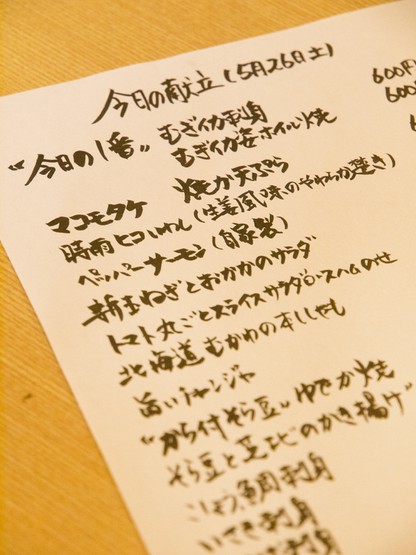 今日の献立(5月26日土)
"今日の1番" むぎイカ刺身 600円
むぎイカ姿ホイル焼 600
マコモタケ 焼か天ぷら 6
時雨ヒコイワシ(生姜風味のやわらか煮き)
ペッパーサーモン(自家製)
新玉ねぎとおかかのサラダ
トマト丸ごとスライスサラダ
北海道むかわの本ししゃも
旨いチャンジャ
"から付そら豆"ゆでか焼
そら豆と芝エビのかき揚げ"
こしょう鯛刺身
いさき刺身
刺身